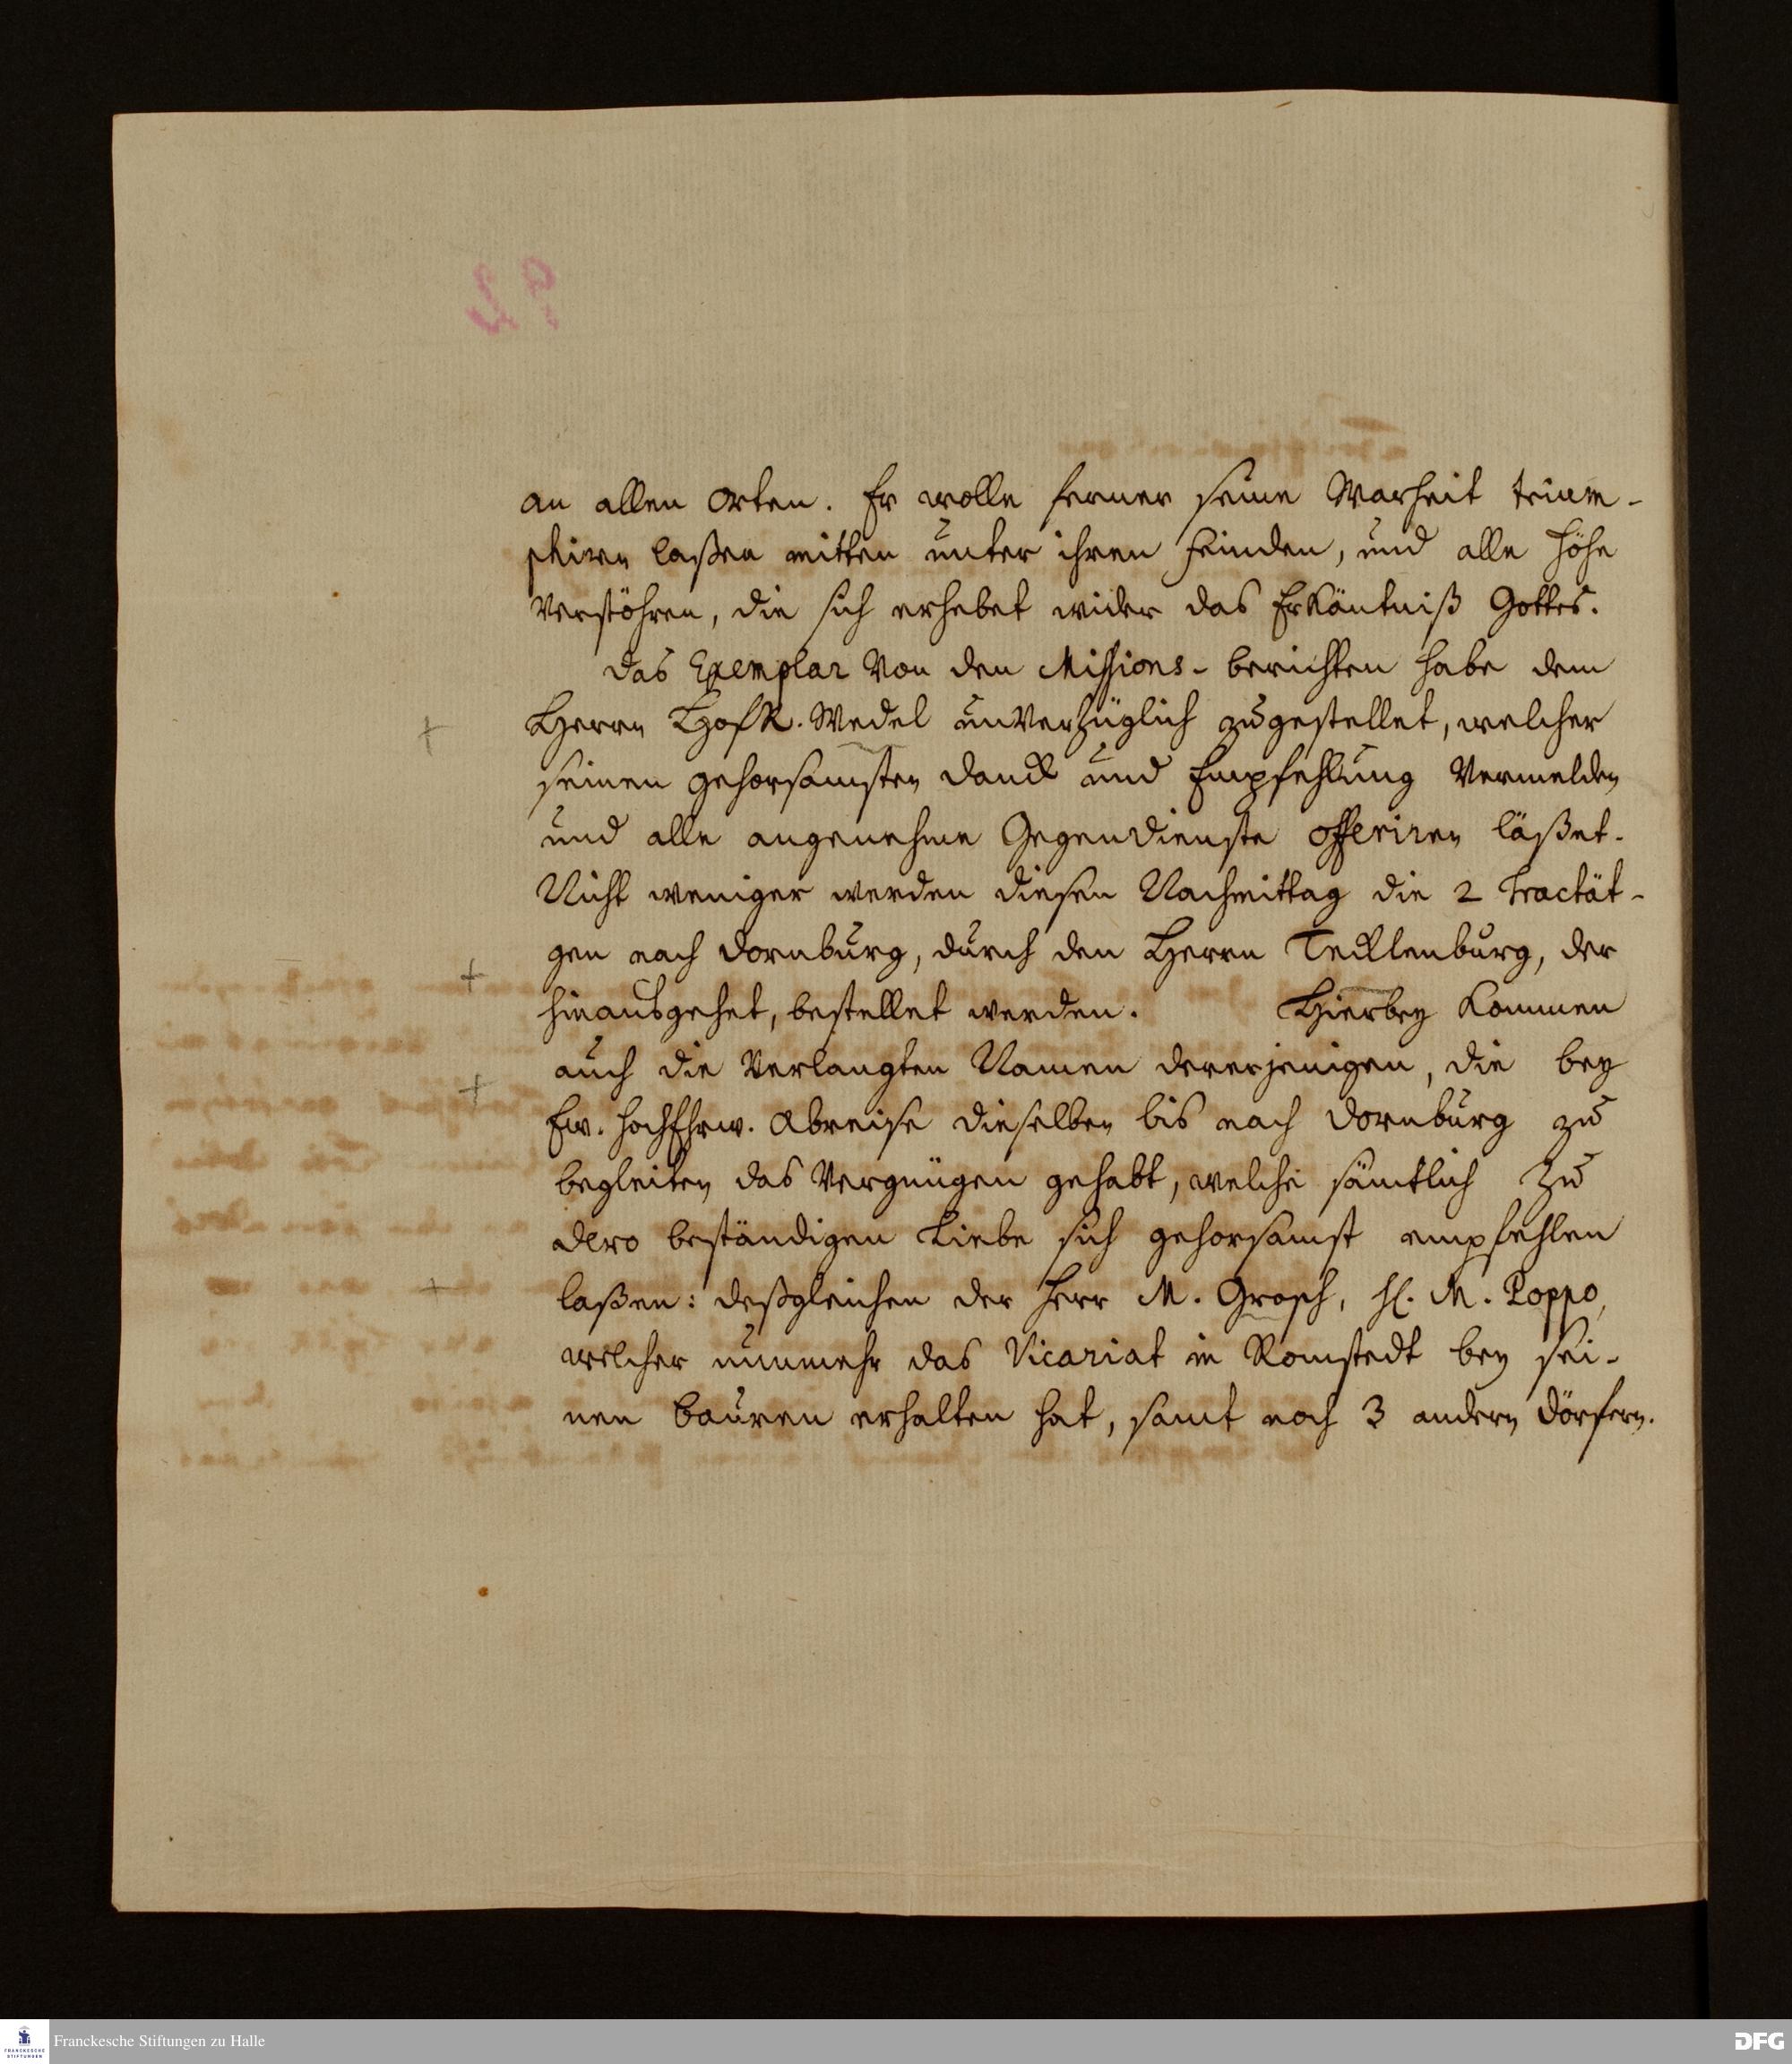 an allen Orten. Er wolle ferner seine Warheit trium-
phiren laßen mitten unter ihren Feinden, und alle Höhe
verstöhren, die sich erhebet wider das Erkäntniß Gottes.
Das Exemplar von den Missions-berichten habe dem
Herrn HofR. Wedel unverzüglich zugestellet, welcher
seinen gehorsamsten Danck und Empfehlung vermelden
und alle angenehme Gegendienste offeriren läßet.
Nicht weniger werden diesen Nachmittag die 2 Tractät-
gen nach Dornburg, durch den Herrn Tecklenburg, der
hinausgehet, bestellet werden. Hierbey kommen
auch die verlangten Namen dererjenigen, die bey
Ew. HochEhrw. Abreise dieselben bis nach Dornburg zu
begleiten das Vergnügen gehabt, welche sämtlich zu
dero beständigen Liebe sich gehorsamst empfehlen
laßen: deßgleichen der Herr M. Grosch, H. M. Poppo,
welcher nunmehr das Vicariat in Romstedt bey sei-
nen Bauren erhalten hat, samt noch 3 andern Dörfern.
Franckesche Stiftungen zu Halle
FRANCKESCHE
STIFTUNGEN
DFG